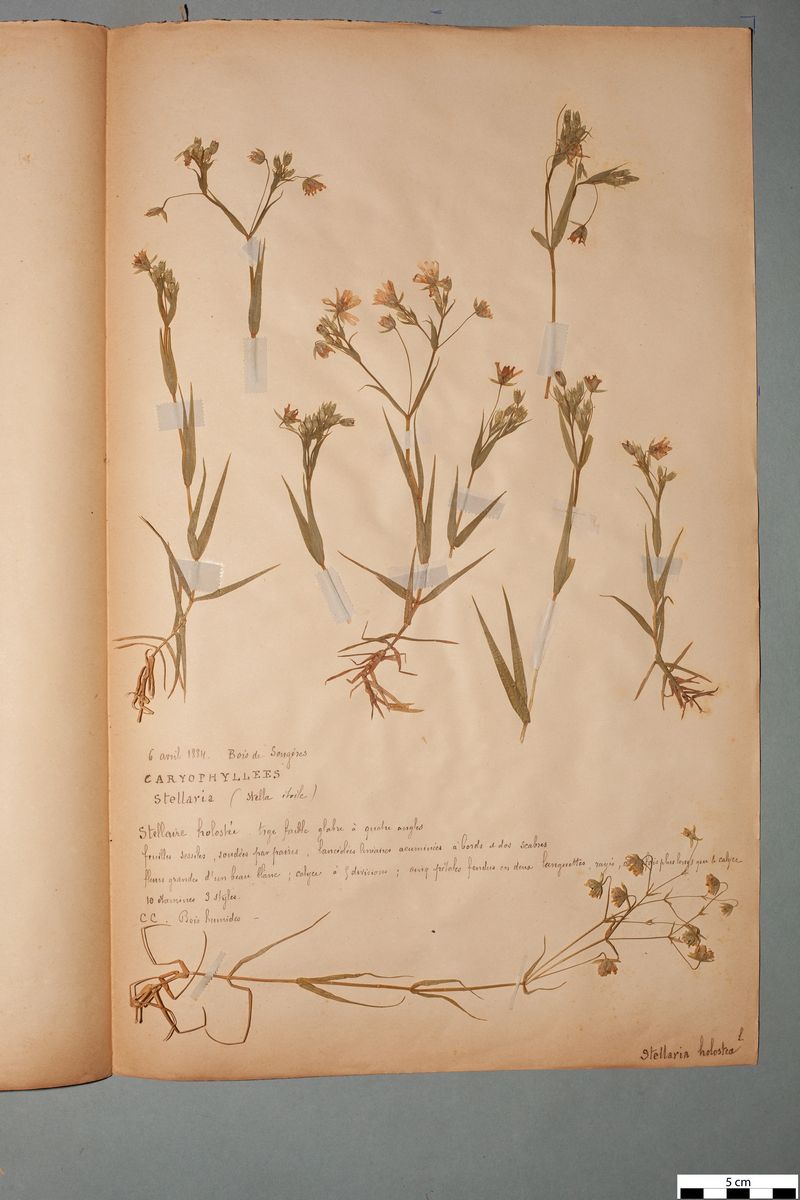 6 avril 1884. Bois de Sougères
CARYOPHYLLEES
Stellaria (Stella étoile)
Stellaire holostée. tige faible glabre à quatre angles
feuilles sessiles, soudées par paires, lancéolées linéaires acuminées à bords & dos scabres
fleurs grandes d'un beau blanc; calyce à 5 divisions; cinq pétales fendus en deux languettes, rayés, plus longs que le calyce
10 étamines 3 styles.
CC. Bois humides -
Stellaria holostea L
5 cm